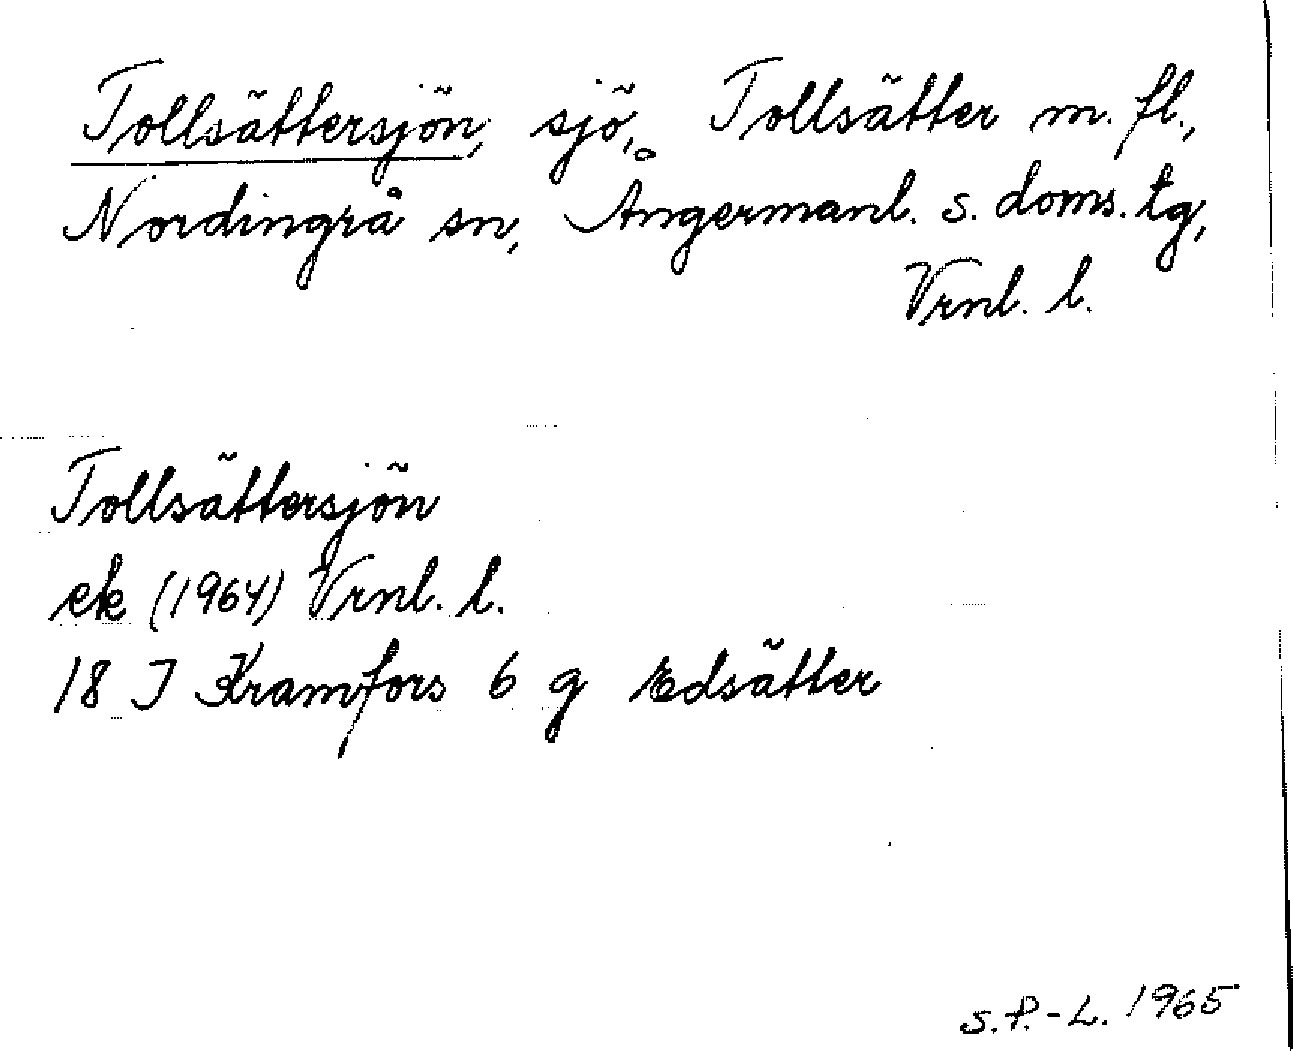 Tollsättersjön, sjö, Tollsätter m. fl.,
Nordingrå sn, Ångermanl. s. doms. tg,
Vrnl. l.
Tollsättersjön
ek (1964) Vrnl. l.
18 I Kramfors 6 g Edsätter
S.P.-L. 1965